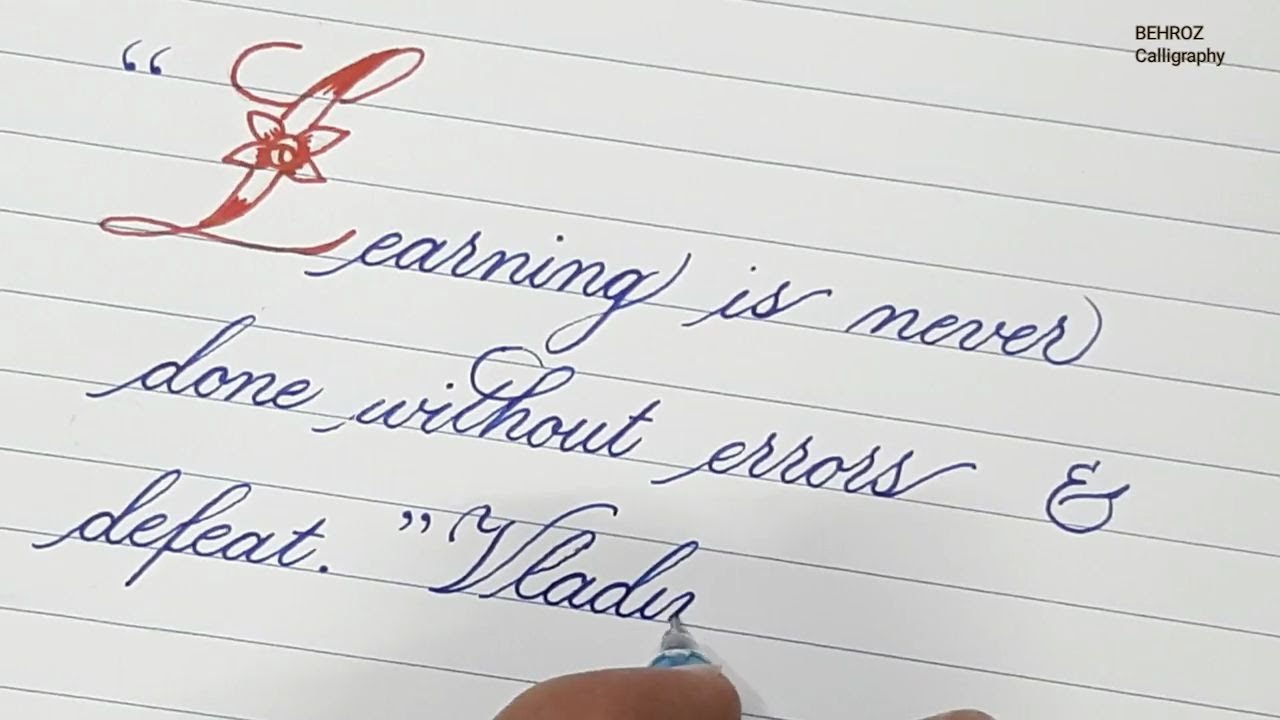 BEHROZ
Calligraphy
“ Learning is never
done without errors &
defeat. ” Vladin